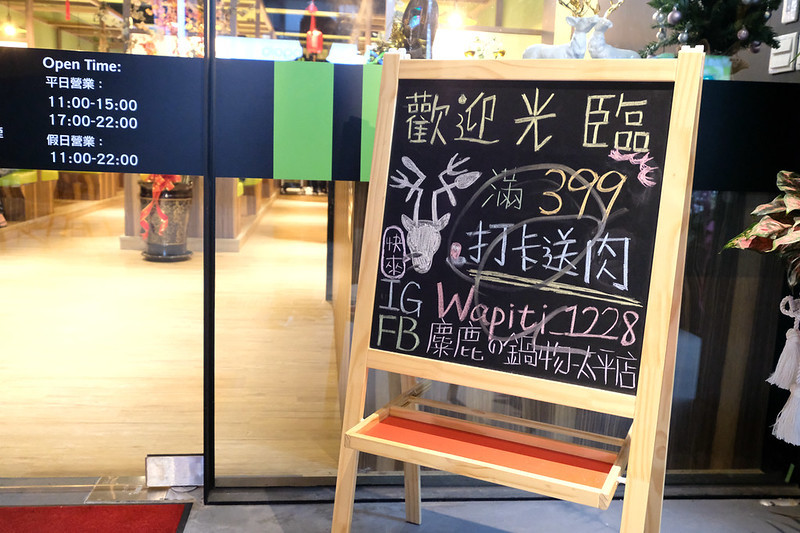 Open Time:
平日營業：
11:00-15:00
17:00-22:00
假日營業：
11:00-22:00
歡迎光臨
滿 399
打卡送肉
快來
IG Wapiti_1228
FB 麋鹿の鍋物-太平店